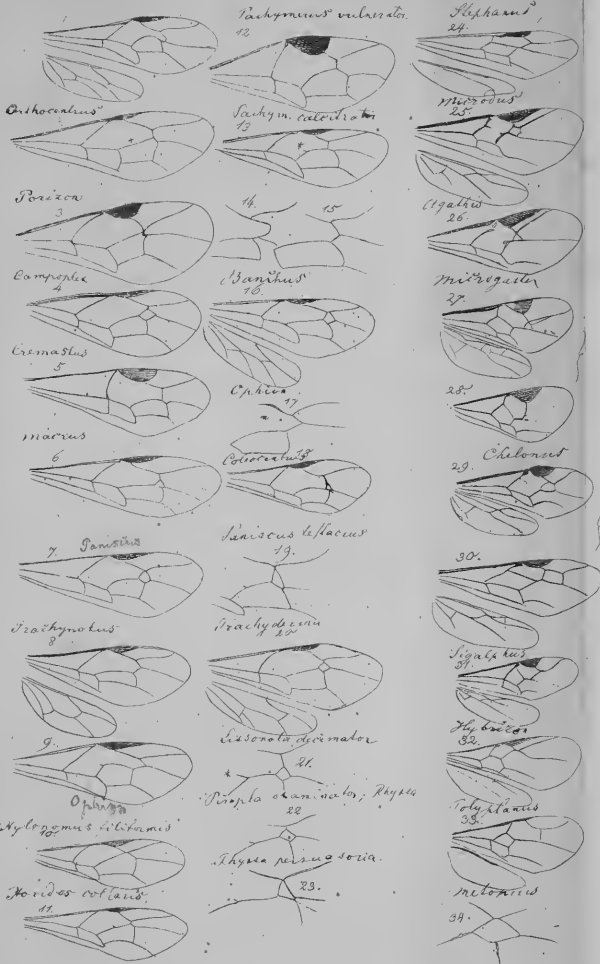 1
Orthocentrus
Porizon
3
Campoplex
4
Cremastus
5
Macrus
6
7. Paniscus
Trachynotus
8
9.
Ophion
10.
11.
Pachymerus vulnerator.
12
Pachym. calcitrator
13
14. 15.
Banchus
16.
Ophion
17
18
Paniscus testaceus
19.
Lissonota decimator
21.
Pimpla examinator, Rhyssa
22
Rhyssa persuasoria.
23.
Stephanus
24.
Microdus
25.
Agathis
26.
Microgaster
27.
28.
Chelonus
29.
30.
Sigalphus
31.
Hybrizon
32.
33.
Metopius
34.